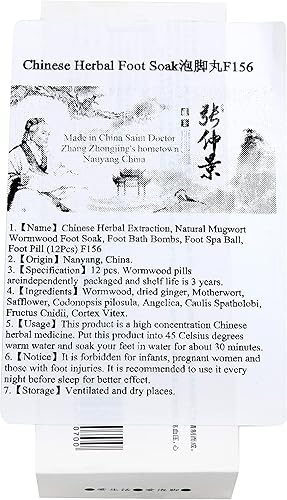 Chinese Herbal Foot Soak泡脚丸F156
张仲景
Made in China Saint Doctor
Zhang Zhongjing's hometown
Nanyang China
1.【Name】Chinese Herbal Extraction, Natural Mugwort
Wormwood Foot Soak, Foot Bath Bombs, Foot Spa Ball,
Foot Pill (12Pcs) F156
2.【Origin】Nanyang, China.
3.【Specification】12 pcs. Wormwood pills
areindependently packaged and shelf life is 3 years.
4.【Ingredients】Wormwood, dried ginger, Motherwort,
Safflower, Codonopsis pilosula, Angelica, Caulis Spatholobi,
Fructus Cnidii, Cortex Vitex.
5.【Usage】This product is a high concentration Chinese
herbal medicine. Put this product into 45 Celsius degrees
warm water and soak your feet in water for about 30 minutes.
6.【Notice】It is forbidden for infants, pregnant women and
those with foot injuries. It is recommended to use it every
night before sleep for better effect.
7.【Storage】Ventilated and dry places.